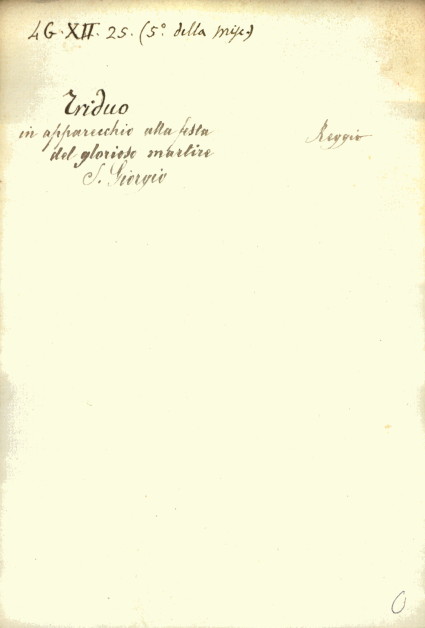 4G. XII. 25. (5º della misc.)
Triduo
in apparecchio alla festa
del glorioso martire
S. Giorgio
Reggio
0